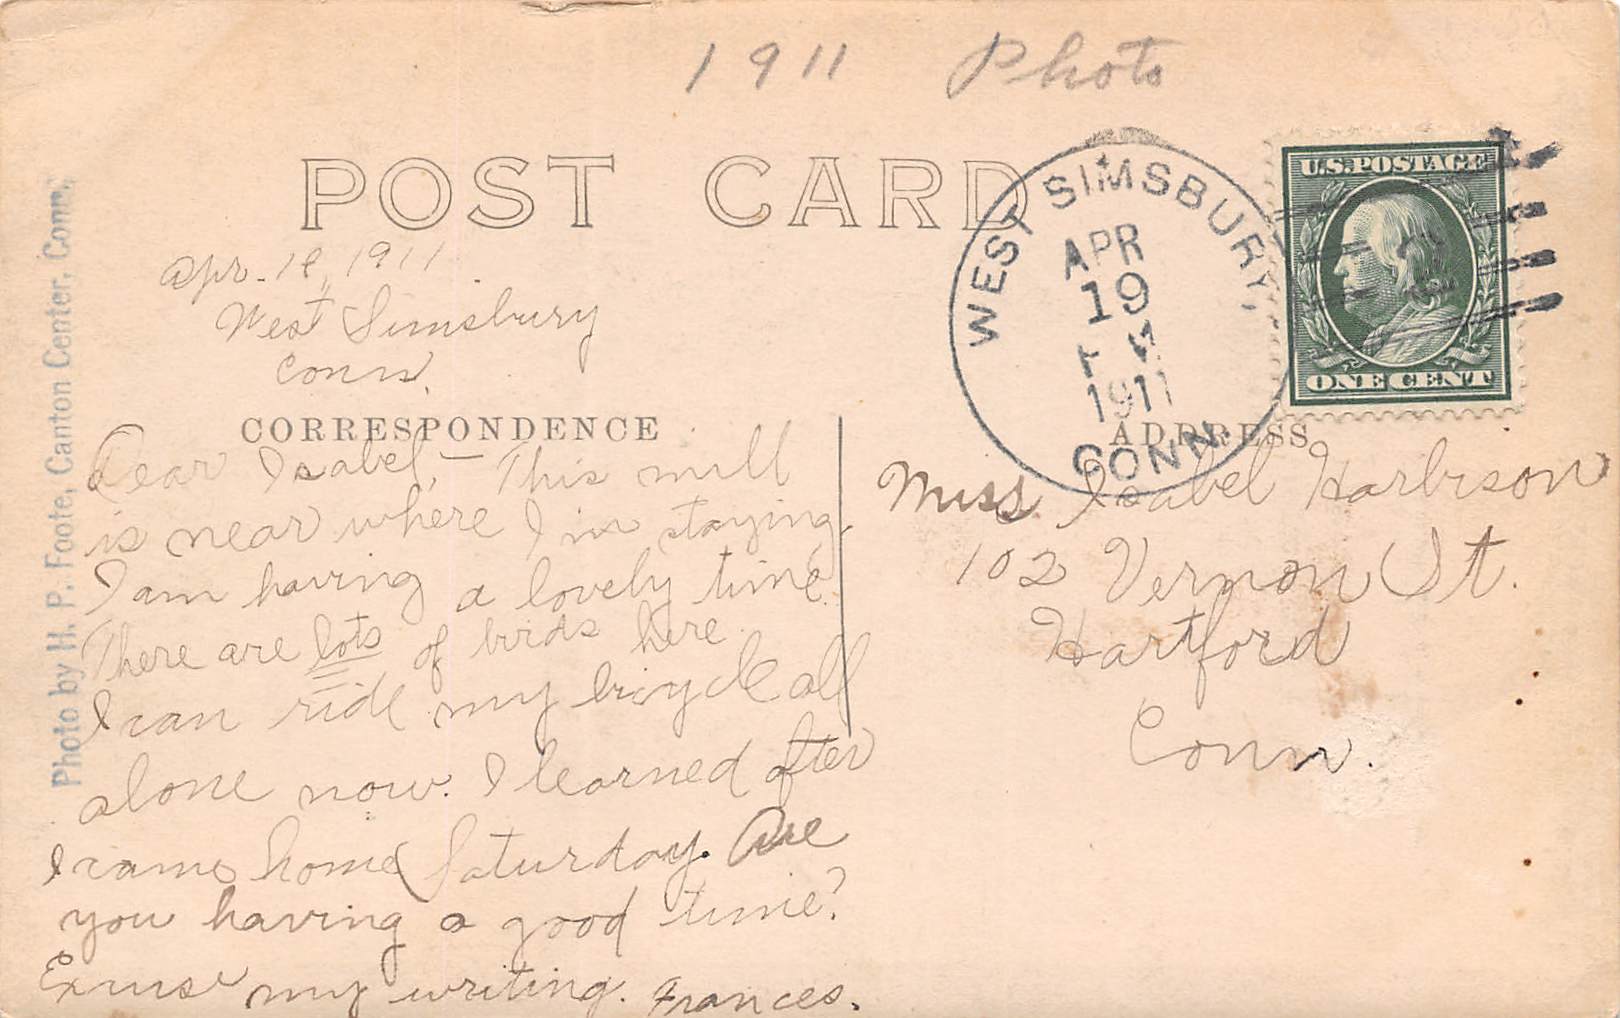 1911 Photo
POST CARD
U.S. POSTAGE
ONE CENT
WEST SIMSBURY,
APR
19
1911
CONN.
Apr. 1911
West Simsbury
Conn.
CORRESPONDENCE
ADDRESS
Dear Isabel,— This mill
is near where I'm staying.
I am having a lovely time.
There are lots of birds here.
I can ride my bicycle all
alone now. I learned after
I came home Saturday. Are
you having a good time?
Excuse my writing. Frances.
Miss. Isabel Harbison
102 Vernon St.
Hartford
Conn.
Photo by H. P. Foote, Canton Center, Conn.